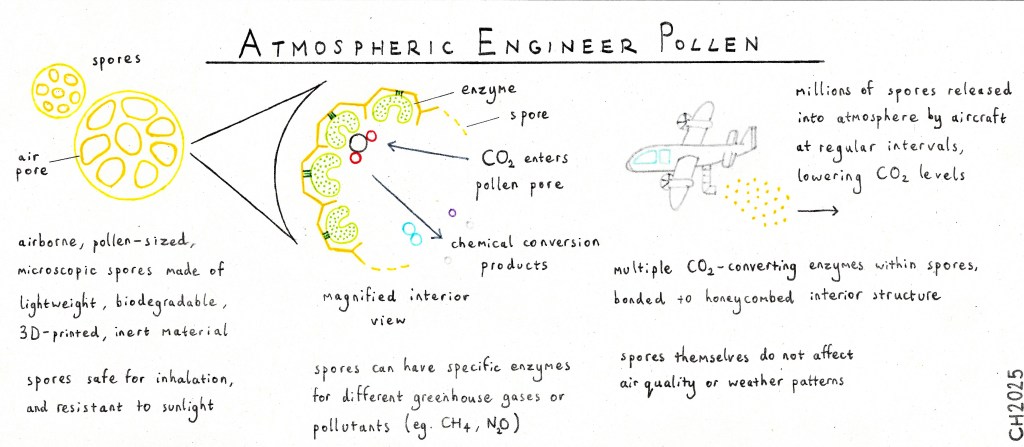 ATMOSPHERIC ENGINEER POLLEN
spores
air
pore
airborne, pollen-sized,
microscopic spores made of
lightweight, biodegradable,
3D-printed, inert material
spores safe for inhalation,
and resistant to sunlight
enzyme
spore
CO2 enters
pollen pore
chemical conversion
products
magnified interior
view
spores can have specific enzymes
for different greenhouse gases or
pollutants (eg. CH4, N2O)
millions of spores released
into atmosphere by aircraft
at regular intervals,
lowering CO2 levels
multiple CO2-converting enzymes within spores,
bonded to honeycombed interior structure
spores themselves do not affect
air quality or weather patterns
CH2025